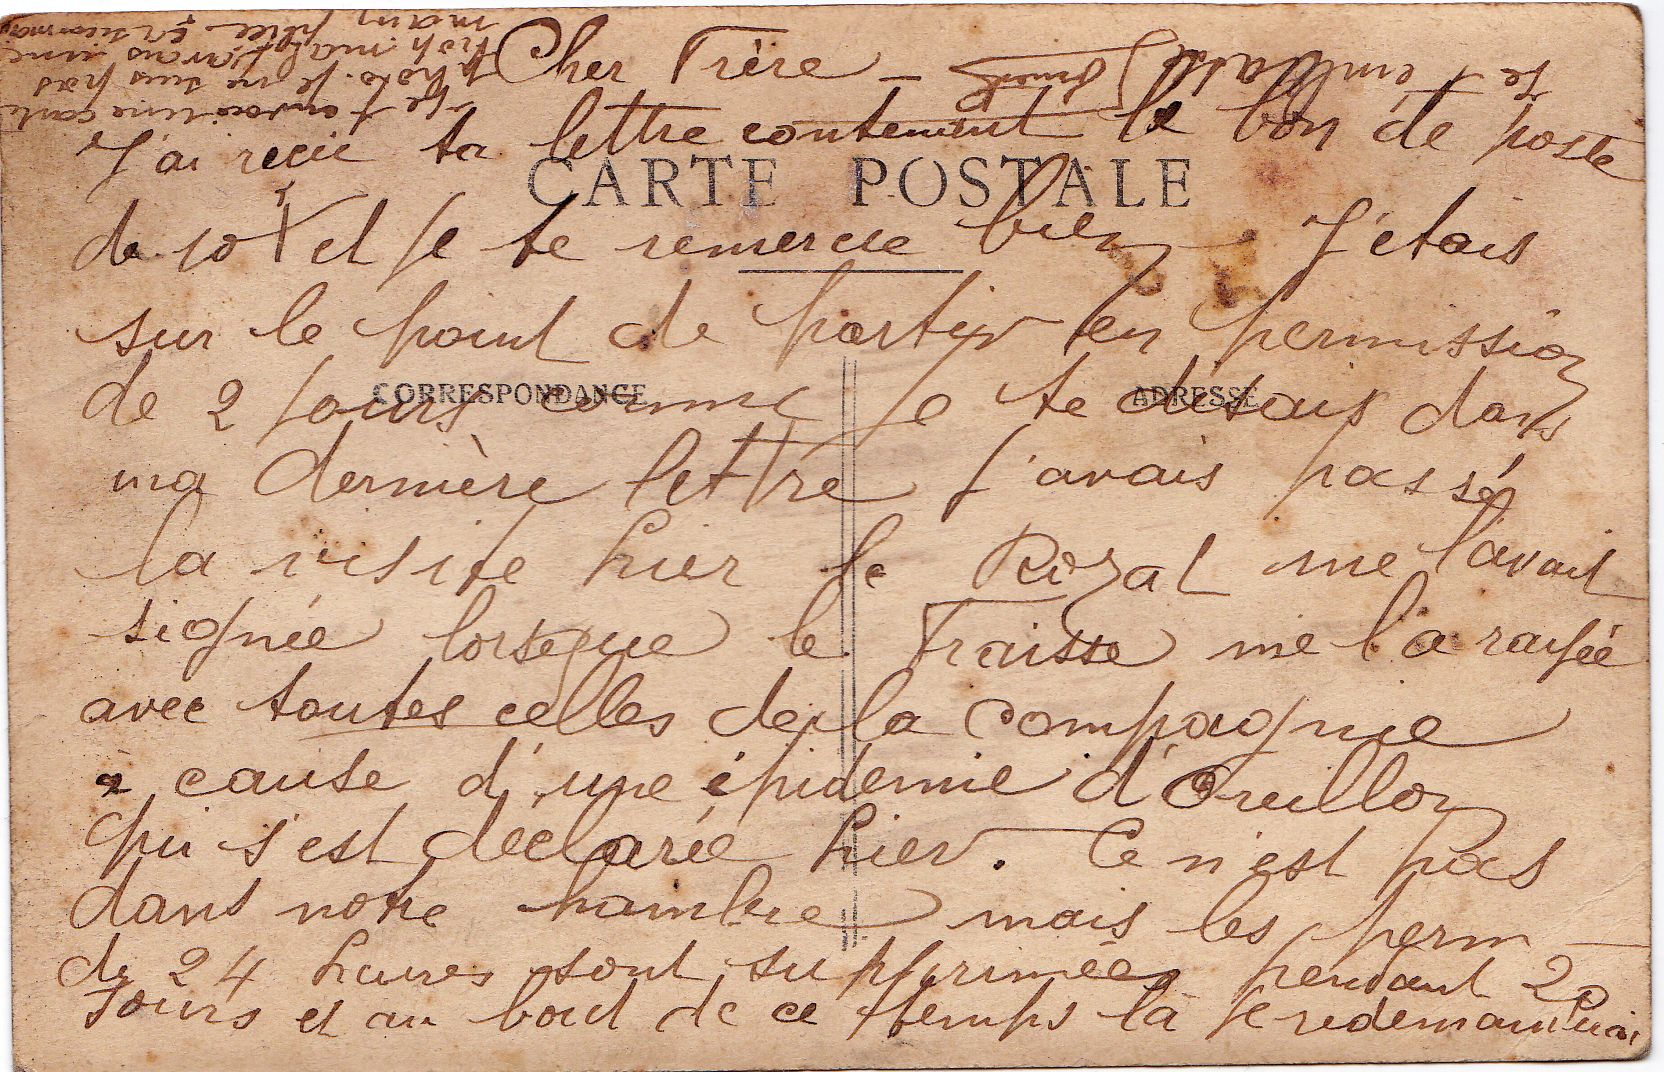 Cher Frère –
J'ai reçue ta lettre contenant le bon de poste
CARTE POSTALE
de 10 f et je te remercie bien J'étais
sur le point de partir en permission
CORRESPONDANCE
ADRESSE
de 2 jours comme je te disais dans
ma dernière lettre j'avais passé
la visite hier le Rozat me l'avait
signée lorseque le Fraisse me l'a rayée
avec toutes celles de la compagnie
à cause d'une épidemie d'Oreillon
qui s'est déclarée hier. Ce n'est pas
dans notre hambre mais les perm
de 24 heures sont supprimées pendant 20
jours et au bout de ce temps là je redemanderai
Je t'envoie une carte
photo. Je ne suis pas
trop mal j'avais une
main
Je t'embasse